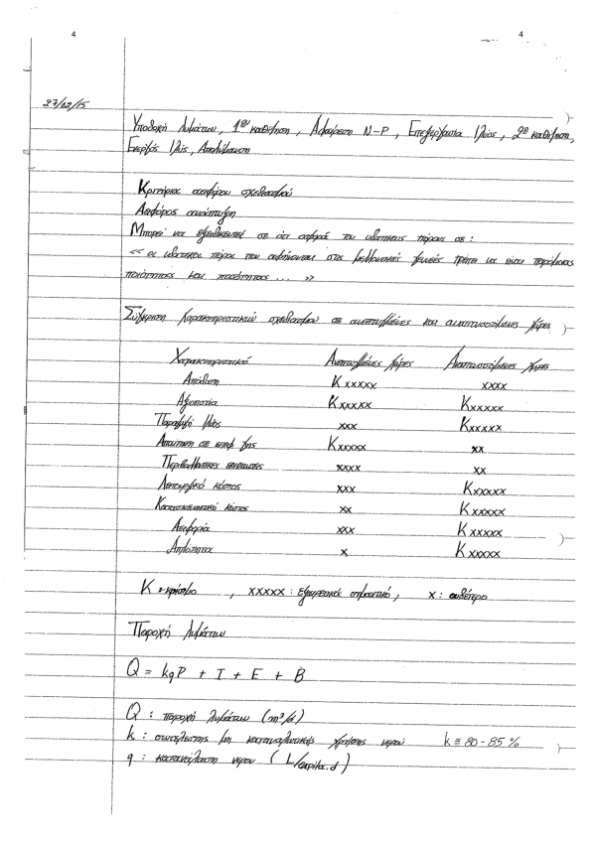 4 4
27/02/15
Υποδοχή λυμάτων, 1βα καθίζηση, Αφαίρεση N-P, Επεξεργασία Ιλύος, 2α καθίζηση,
Ενεργός Ιλύς, Απολύμανση
Κριτήρια αειφόρου σχεδιασμού
Αειφόρος ανάπτυξη
Μπορεί να εξειδικευτεί σε ότι αφορά τους υδατικούς πόρους σε:
<< οι υδατικοί πόροι που αφήνονται στις μελλοντικές γενιές πρέπει να είναι παρόμοιας
ποιότητας και ποσότητας ... >>
Σύγκριση χαρακτηριστικών σχεδιασμού σε ανεπτυγμένες και αναπτυσσόμενες χώρες
Χαρακτηριστικό Ανεπτυγμένες χώρες Αναπτυσσόμενες χώρες
Απόδοση Κ xxxxx xxxx
Αξιοπιστία Κxxxxx Κxxxxx
Παραγωγή Ιλύος xxx Κxxxxx
Απαίτηση σε επιφ γης Κxxxxx xx
Περιβαλλοντικές επιπτώσεις xxxx xx
Λειτουργικό κόστος xxx Κxxxxx
Κατασκευαστικό κόστος xx Κxxxxx
Αειφορία xxx Κ xxxxx
Απλότητα x Κ xxxxx
Κ : κρίσιμο , xxxxx : εξαιρετικά σημαντικό, x : ουδέτερο
Παροχή λυμάτων
Q = kqP + I + E + B
Q : παροχή λυμάτων (m³/d)
k : συντελεστής μη καταναλωτικής χρήσης νερού k ≅ 80 - 85 %
q : κατανάλωση νερού ( L/capita.d )